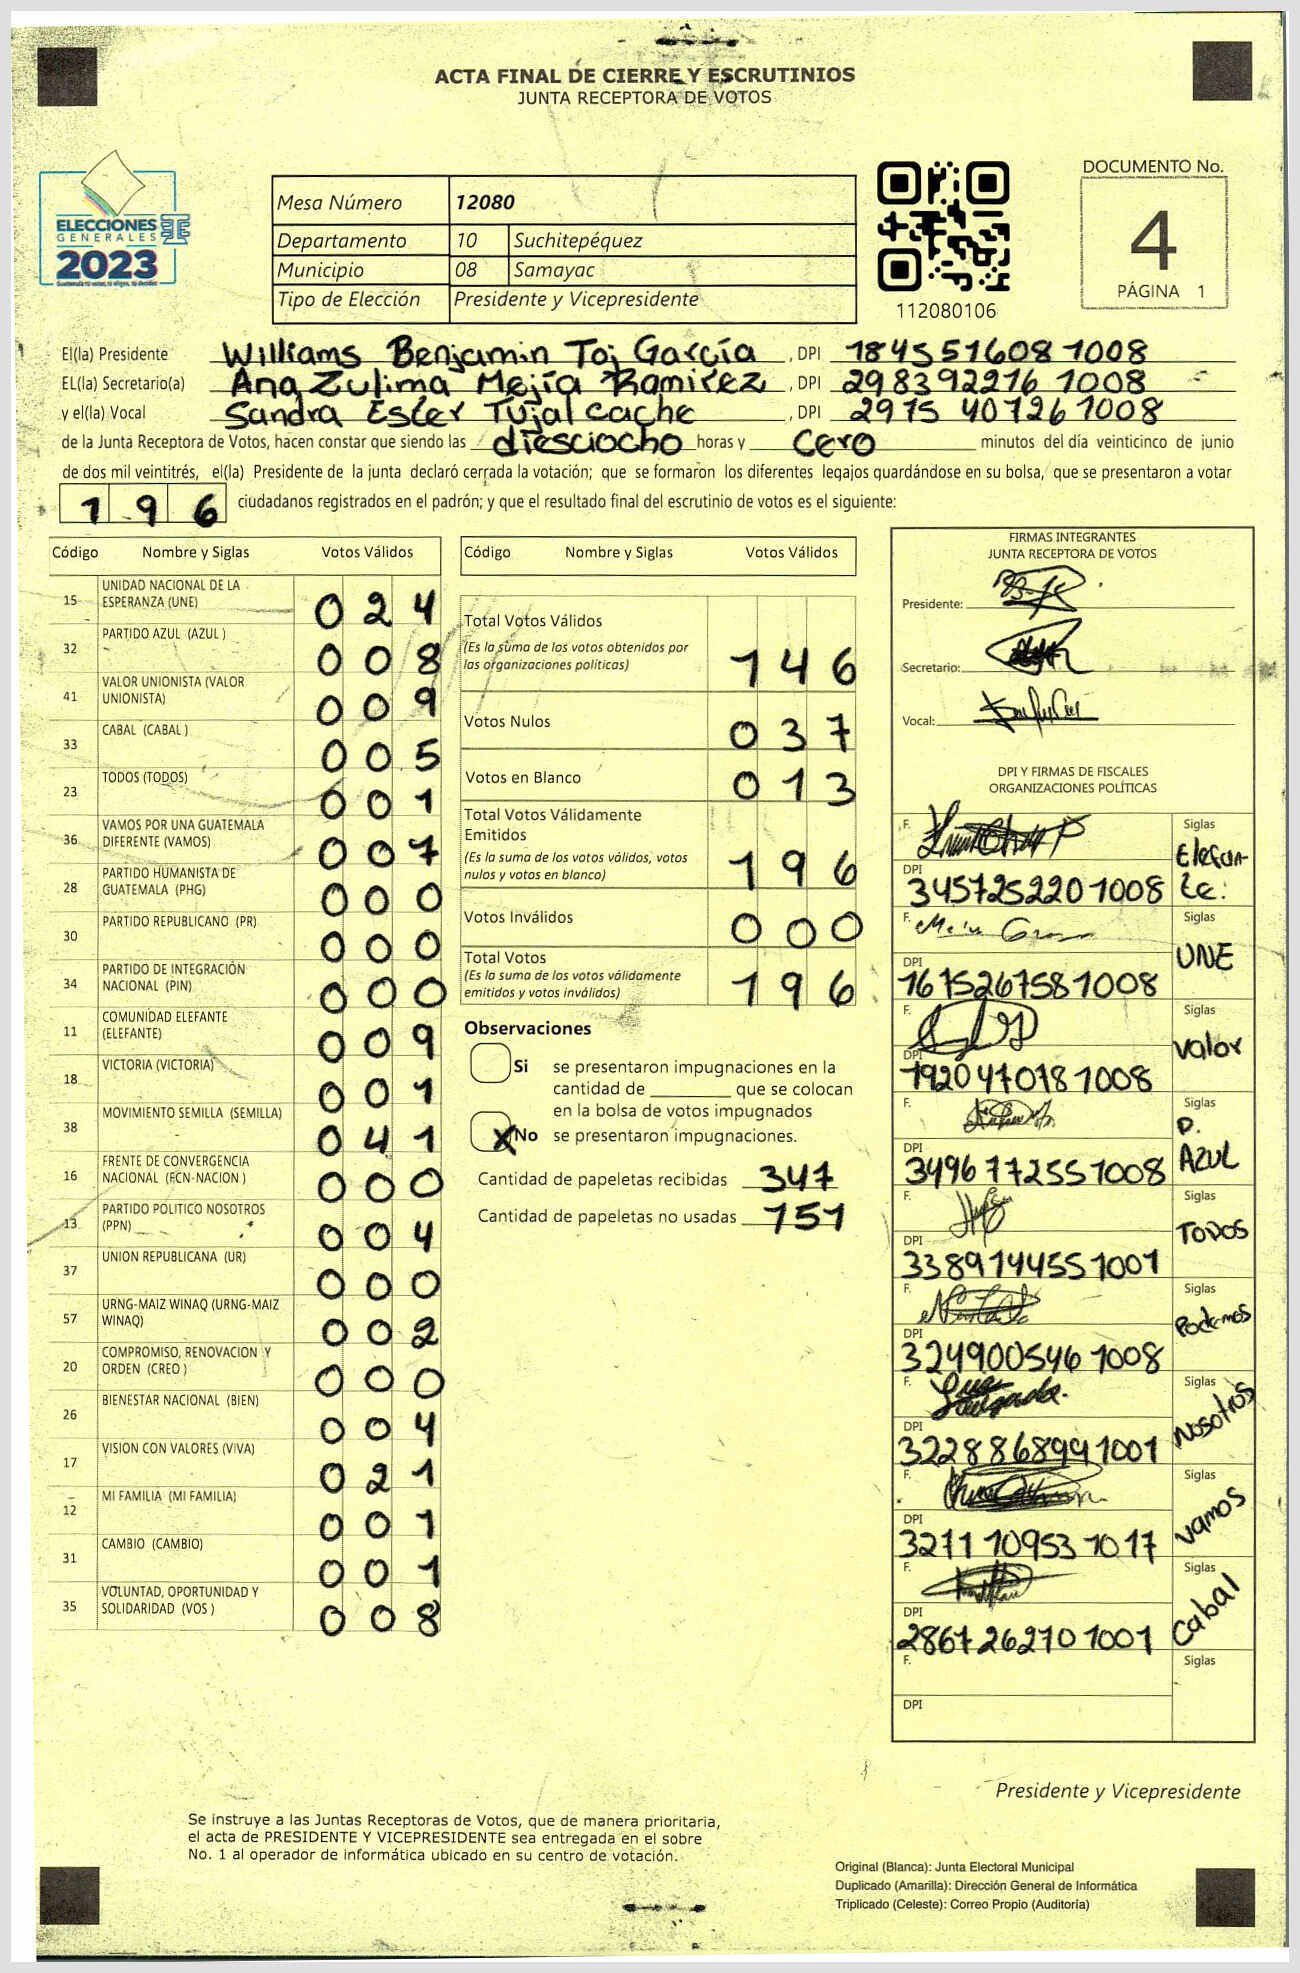 ACTA FINAL DE CIERRE Y ESCRUTINIOS
JUNTA RECEPTORA DE VOTOS
ELECCIONES
GENERALES
2023
Mesa Número 12080
Departamento 10 Suchitepéquez
Municipio 08 Samayac
Tipo de Elección Presidente y Vicepresidente
112080106
DOCUMENTO No.
4
PÁGINA 1
El(la) Presidente Williams Benjamin Toj García , DPI 184551608 1008
EL(la) Secretario(a) Ana Zulima Mejía Ramirez , DPI 298392216 1008
y el(la) Vocal Sandra Ester Tujal cache , DPI 2975 40726 1008
de la Junta Receptora de Votos, hacen constar que siendo las diesciocho horas y cero minutos del día veinticinco de junio
de dos mil veintitrés, el(la) Presidente de la junta declaró cerrada la votación; que se formaron los diferentes legajos guardándose en su bolsa, que se presentaron a votar
196 ciudadanos registrados en el padrón; y que el resultado final del escrutinio de votos es el siguiente:
Código Nombre y Siglas Votos Válidos
15 UNIDAD NACIONAL DE LA ESPERANZA (UNE) 024
32 PARTIDO AZUL (AZUL ) 008
41 VALOR UNIONISTA (VALOR UNIONISTA) 009
33 CABAL (CABAL ) 005
23 TODOS (TODOS) 001
36 VAMOS POR UNA GUATEMALA DIFERENTE (VAMOS) 007
28 PARTIDO HUMANISTA DE GUATEMALA (PHG) 000
30 PARTIDO REPUBLICANO (PR) 000
34 PARTIDO DE INTEGRACIÓN NACIONAL (PIN) 000
11 COMUNIDAD ELEFANTE (ELEFANTE) 009
18 VICTORIA (VICTORIA) 001
38 MOVIMIENTO SEMILLA (SEMILLA) 041
16 FRENTE DE CONVERGENCIA NACIONAL (FCN-NACION ) 000
13 PARTIDO POLITICO NOSOTROS (PPN) 004
37 UNION REPUBLICANA (UR) 000
57 URNG-MAIZ WINAQ (URNG-MAIZ WINAQ) 002
20 COMPROMISO, RENOVACION Y ORDEN (CREO ) 000
26 BIENESTAR NACIONAL (BIEN) 004
17 VISION CON VALORES (VIVA) 021
12 MI FAMILIA (MI FAMILIA) 001
31 CAMBIO (CAMBIO) 001
35 VOLUNTAD, OPORTUNIDAD Y SOLIDARIDAD (VOS ) 008
Código Nombre y Siglas Votos Válidos
Total Votos Válidos
(Es la suma de los votos obtenidos por
las organizaciones políticas) 146
Votos Nulos 037
Votos en Blanco 013
Total Votos Válidamente
Emitidos
(Es la suma de los votos válidos, votos
nulos y votos en blanco) 196
Votos Inválidos 000
Total Votos
(Es la suma de los votos válidamente
emitidos y votos inválidos) 196
Observaciones
Si se presentaron impugnaciones en la
cantidad de ________ que se colocan
en la bolsa de votos impugnados
X No se presentaron impugnaciones.
Cantidad de papeletas recibidas 347
Cantidad de papeletas no usadas 151
FIRMAS INTEGRANTES
JUNTA RECEPTORA DE VOTOS
Presidente:
Secretario:
Vocal:
DPI Y FIRMAS DE FISCALES
ORGANIZACIONES POLÍTICAS
F. Siglas Elefan-
DPI 345725220 1008 te:
F. Siglas
DPI 167526758 1008 UNE
F. Siglas
DPI 192047018 1008 valor
F. Siglas P.
DPI 3496 77255 1008 AZUL
F. Siglas
DPI 338914455 1001 TODOS
F. Siglas
DPI 324900546 1008 Podemos
F. Siglas
DPI 322886899 1001 Nosotros
F. Siglas
DPI 3271 10953 1017 Vamos
F. Siglas
DPI 2867 26270 1001 Cabal
F. Siglas
DPI
Presidente y Vicepresidente
Se instruye a las Juntas Receptoras de Votos, que de manera prioritaria,
el acta de PRESIDENTE Y VICEPRESIDENTE sea entregada en el sobre
No. 1 al operador de informática ubicado en su centro de votación.
Original (Blanca): Junta Electoral Municipal
Duplicado (Amarilla): Dirección General de Informática
Triplicado (Celeste): Correo Propio (Auditoría)